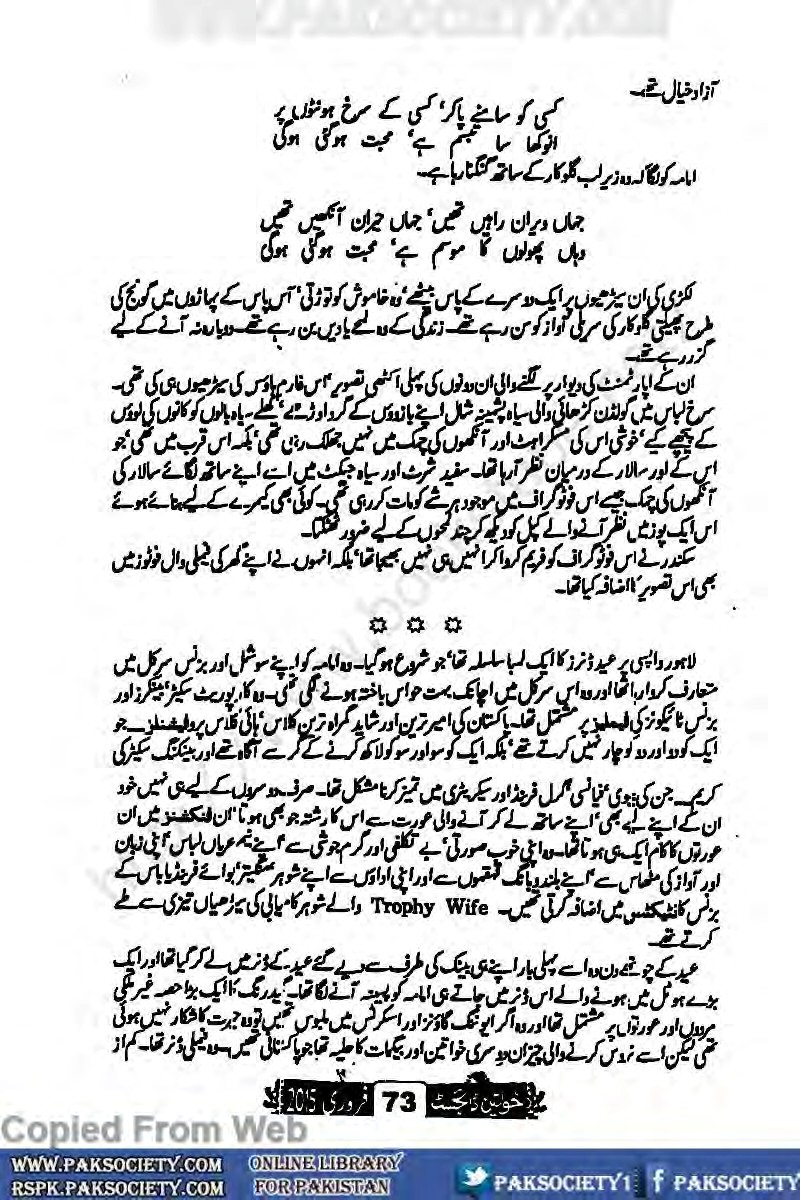 آزاد خیال تھے۔
کسی کو سامنے پا کر' کسی کے سرخ ہونٹوں پر
انوکھا سا تبسم ہے' محبت ہوگئی ہوگی
امامہ کو لگا کہ وہ زیر لب گلوکار کے ساتھ گنگنا رہا ہے۔
جہاں ویران راہیں تھیں' جہاں حیران آنکھیں تھیں
وہاں پھولوں کا موسم ہے' محبت ہوگئی ہوگی
لکڑی کی ان سیڑھیوں پر ایک دوسرے کے پاس بیٹھے' وہ خاموش کو توڑتی' آس پاس کے پہاڑوں میں گونج کی
طرح پھیلتی گلوکار کی سریلی آواز کو سن رہے تھے۔ زندگی کے وہ لمحے یادیں بن رہے تھے۔ دوبارہ نہ آنے کے لیے
گزر رہے تھے۔
ان کے اپارٹمنٹ کی دیوار پر لگنے والی ان دونوں کی پہلی اکٹھی تصویر' اس فارم ہاؤس کی سیڑھیوں ہی کی تھی۔
سرخ لباس میں گولڈن کڑھائی والی سیاہ پشمینہ شال اپنے بازوؤں کے گرد اوڑھے' کھلے سیاہ بالوں کو کانوں کی لوؤں
کے پیچھے کیے' خوشی اس کی مسکراہٹ اور آنکھوں کی چمک میں نہیں جھلک رہی تھی' بلکہ اس قرب میں تھی' جو
اس کے اور سالار کے درمیان نظر آرہا تھا۔ سفید شرٹ اور سیاہ جیکٹ میں اسے اپنے ساتھ لگائے سالار کی
آنکھوں کی چمک جیسے اس فوٹو گراف میں موجود ہر شے کو مات کر رہی تھی۔ کوئی بھی کیمرے کے لیے بنائے ہوئے
اس ایک پوز میں نظر آنے والے کپل کو دیکھ کر چند لمحوں کے لیے ضرور ٹھٹکتا۔
سکندر نے اس فوٹو گراف کو فریم کروا کر انہیں ہی نہیں بھیجا تھا' بلکہ انہوں نے اپنے گھر کی فیملی وال فوٹوز میں
بھی اس تصویر کا اضافہ کیا تھا۔
✡ ✡ ✡
لاہور واپسی پر عید ڈنرز کا ایک لمبا سلسلہ تھا' جو شروع ہوگیا۔ وہ امامہ کو اپنے سوشل اور بزنس سرکل میں
متعارف کروا رہا تھا اور وہ اس سرکل میں اچانک بہت حواس باختہ ہونے لگی تھی۔ وہ کارپوریٹ سیکٹر' بینکرز اور
بزنس ٹائیکونز کی فیملیز پر مشتمل تھا۔ پاکستان کی امیر ترین اور شاید گمراہ ترین کلاس' ہائی کلاس پروفیشنلز۔ جو
ایک کو دو اور دو کو چار نہیں کرتے تھے' بلکہ ایک کو سو اور سو کو لاکھ کرنے کے گر سے آگاہ تھے اور بینکنگ سیکٹر کی
کریم۔ جن کی بیوی' فیانسی' گرل فرینڈ اور سیکریٹری میں تمیز کرنا مشکل تھا۔ صرف دوسروں کے لیے ہی نہیں خود
ان کے اپنے لیے بھی' اپنے ساتھ لے کر آنے والی عورت سے اس کا رشتہ جو بھی ہوتا' ان فنکشنز میں ان
عورتوں کا کام ایک ہی ہوتا تھا۔ وہ اپنی خوب صورتی' بے تکلفی اور گرم جوشی سے' اپنے نیم عریاں لباس' اپنی زبان
اور آواز کی مٹھاس سے' اپنے بلند و بانگ قہقہوں سے اور اپنی اداؤں سے اپنے شوہر' منگیتر' بوائے فرینڈ یا باس کے
بزنس کانٹیکٹس میں اضافہ کرتی تھیں۔ Trophy Wife والے شوہر کامیابی کی سیڑھیاں تیزی سے طے
کرتے تھے۔
عید کے چوتھے دن وہ اسے پہلی بار اپنے ہی بینک کی طرف سے دیے گئے عید کے ڈنر میں لے کر گیا تھا اور ایک
بڑے ہوٹل میں ہونے والے اس ڈنر میں جاتے ہی امامہ کو پسینہ آنے لگا تھا۔ گیدرنگ کا ایک بڑا حصہ غیر ملکی
مردوں اور عورتوں پر مشتمل تھا اور وہ اگر ایوننگ گاؤنز اور اسکرٹس میں ملبوس تھیں تو وہ حیرت کا شکار نہیں ہوئی
تھی لیکن اسے نروس کرنے والی چیز ان دوسری خواتین اور بیگمات کا حلیہ تھا جو پاکستانی تھیں۔ وہ فیملی ڈنر تھا۔ کم از
خواتین ڈائجسٹ 73 فروری 2015
Copied From Web
WWW.PAKSOCIETY.COM ONLINE LIBRARY PAKSOCIETY1 PAKSOCIETY
RSPK.PAKSOCIETY.COM FOR PAKISTAN